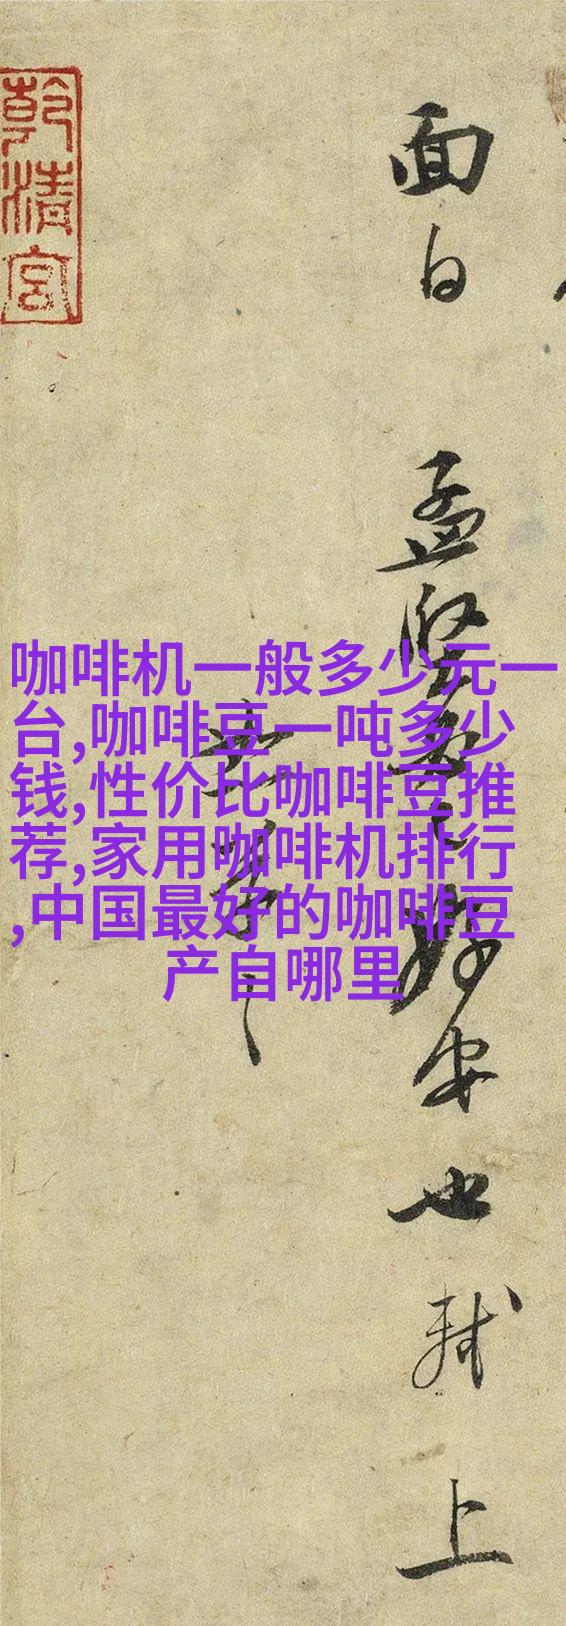 面白 孟堅 安也 軾 上
乾清宮
咖啡机一般多少元一
台,咖啡豆一吨多少
钱,性价比咖啡豆推
荐,家用咖啡机排行
,中国最好的咖啡豆
产自哪里